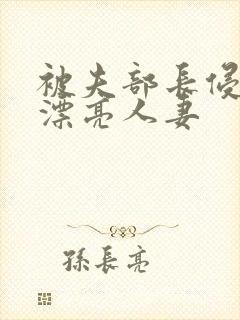 被夫部長侵
漂亮人妻
孫長亮